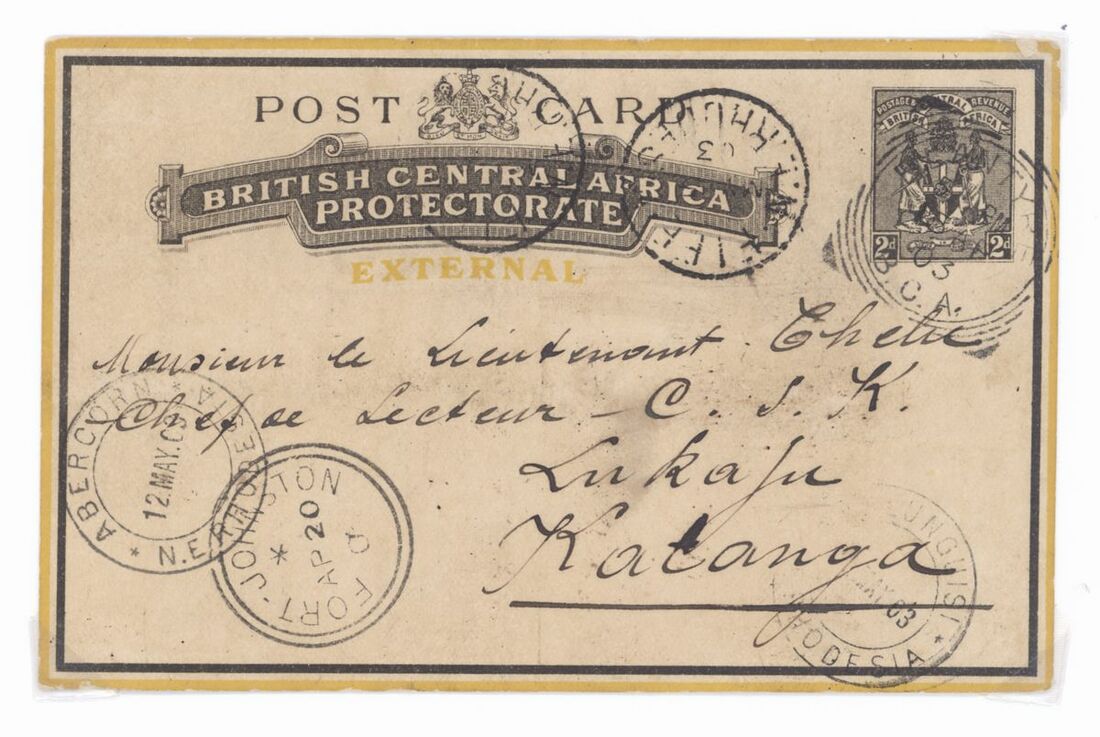 POST CARD
BRITISH CENTRAL AFRICA
PROTECTORATE
EXTERNAL
POSTAGE & REVENUE
2d 2d
03
B.C.A.
03
Monsieur le Lieutenant
Chef de Secteur - C. S. K.
Lukafu
Katanga
ABERCORN
12 MAY.03
N.E. RHODESIA
FORT-JOHNSTON
AP 20
03
RHODESIA